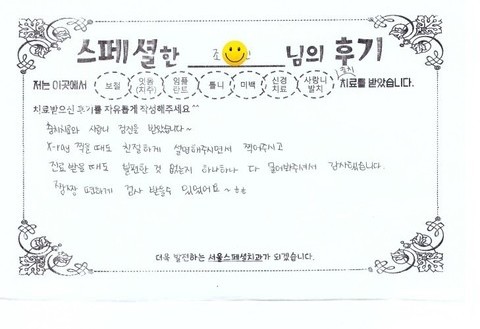 스페셜한 조 님의 후기
저는 이곳에서 보철 잇몸(치주) 임플란트 틀니 미백 신경치료 사랑니발치 치료를 받았습니다.
치료받으신 후기를 자유롭게 작성해주세요^^
충치치료와 사랑니 검진을 받았습니다~
X-ray 찍을때도 친절하게 설명해주시면서 찍어주시고
진료 받을때도 불편한 것 없는지 하나하나 다 물어봐주셔서 감사했습니다.
짱짱 편하게 검사 받을수 있었어요~ ㅎㅎ
더욱 발전하는 서울스페셜치과가 되겠습니다.